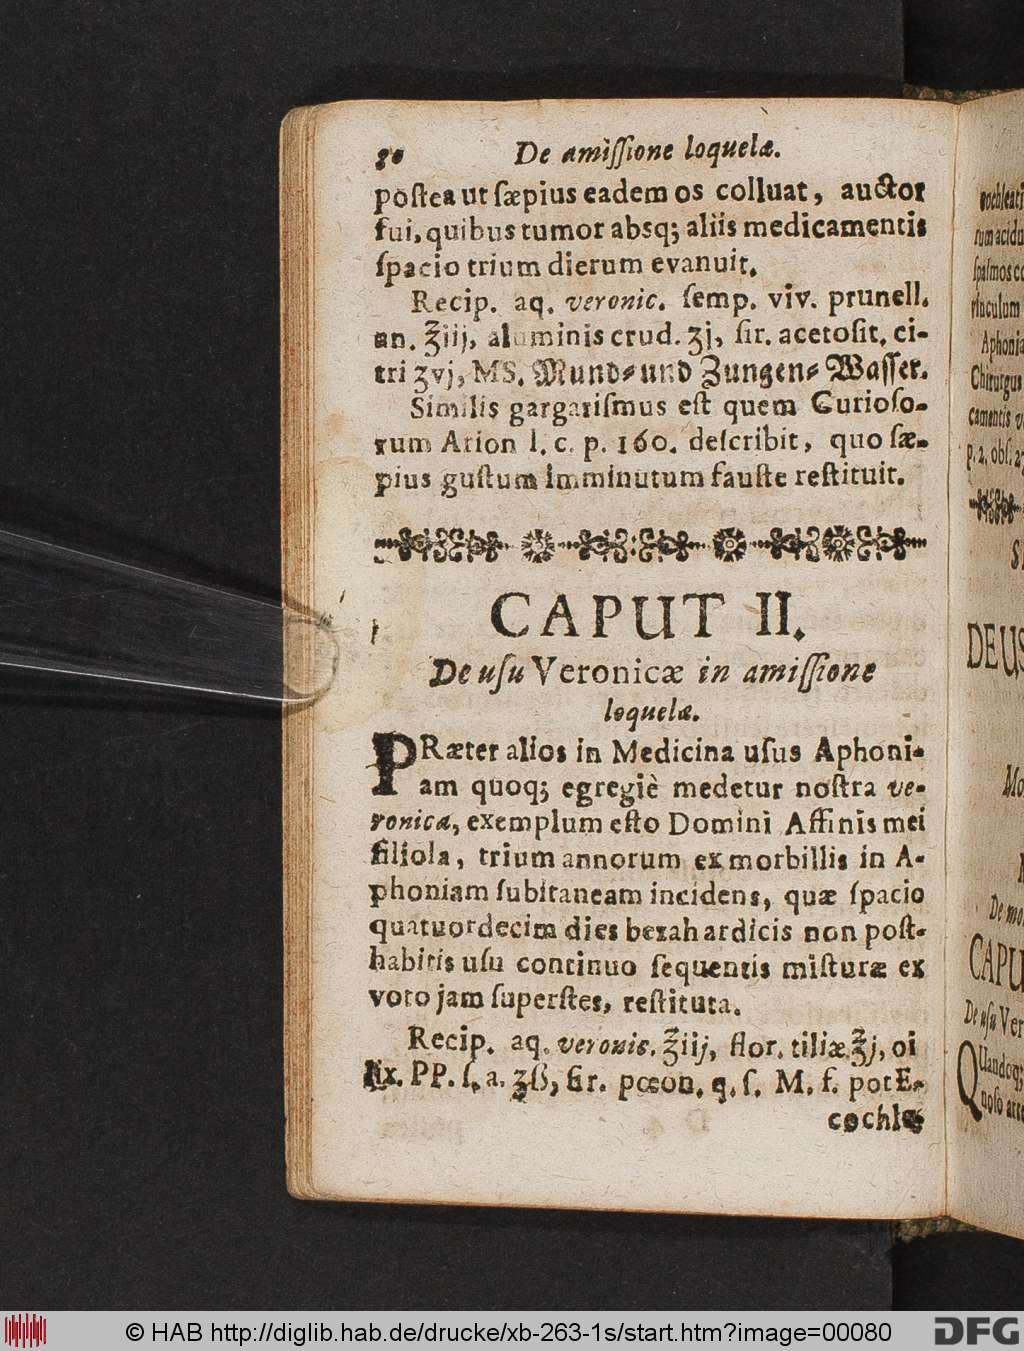 80 De amiſſione loquelæ.
poſtea ut ſæpius eadem os colluat, auctor
fui, quibus tumor absq; aliis medicamentis
ſpacio trium dierum evanuit.
Recip. aq. veronic. ſemp. viv. prunell.
an. ℥iij, aluminis crud. ʒj, ſir. acetoſit. ci-
tri ʒvj, MS. Mund- und Zungen- Waſſer.
Similis gargariſmus eſt quem Curioſo-
rum Arion l. c. p. 160. deſcribit, quo ſæ-
pius guſtum imminutum fauſte reſtituit.
CAPUT II.
De uſu Veronicæ in amiſſione
loquelæ.
PRæter alios in Medicina uſus Aphoni-
am quoq; egregiè medetur noſtra ve-
ronica, exemplum eſto Domini Affinis mei
filiola, trium annorum ex morbillis in A-
phoniam ſubitaneam incidens, quæ ſpacio
quatuordecim dies bezahardicis non poſt-
habitis uſu continuo ſequentis miſturæ ex
voto jam ſuperſtes, reſtituta.
Recip. aq. veronic. ℥iij, flor. tiliæ ℥j, oi
PP. ſ. a. ʒß, ſir. pœon. q. ſ. M. f. pot
cochle-
cochleati
rum acidu
ſpaſmos co
vinculum
Aphonia
Chirurgus
camentis v
p. 2. obſ. 27
S
DEUS
Mo
De mo
CAPU
De uſu Ver
Quandoq;
noſo arte
© HAB http://diglib.hab.de/drucke/xb-263-1s/start.htm?image=00080
DFG